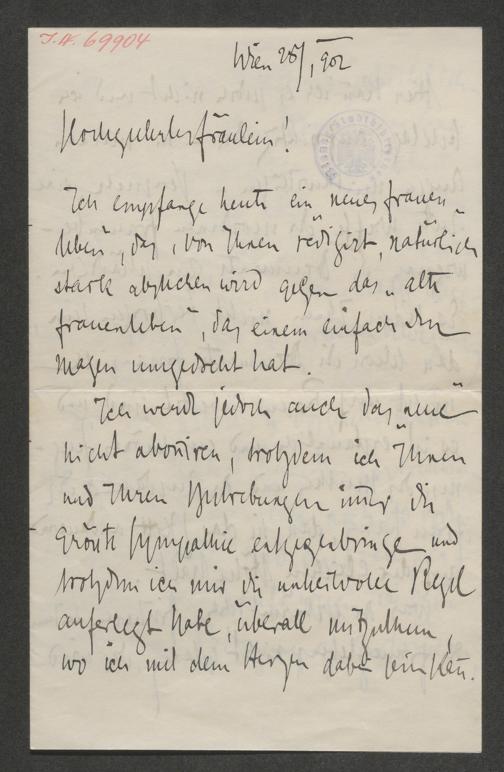 J.N. 69904
Wien 28/I 902
Hochgeehrtes Fräulein!
Ich empfange heute ein „neues Frauen„
leben", das, von Ihnen redigirt, natürlich
stark abstechen wird gegen das „alte
Frauenleben", das einem einfach den
Magen umgedreht hat.
Ich werde jedoch auch das „neue"
nicht aboniren, trotzdem ich Ihnen
und Ihren Bestrebungen immer die
größte Sympathie entgegenbringe und
trotzdem ich mir die unheilvolle Regel
auferlegt habe, überall mitzuthun,
wo ich mit dem Herzen dabei sein kann.